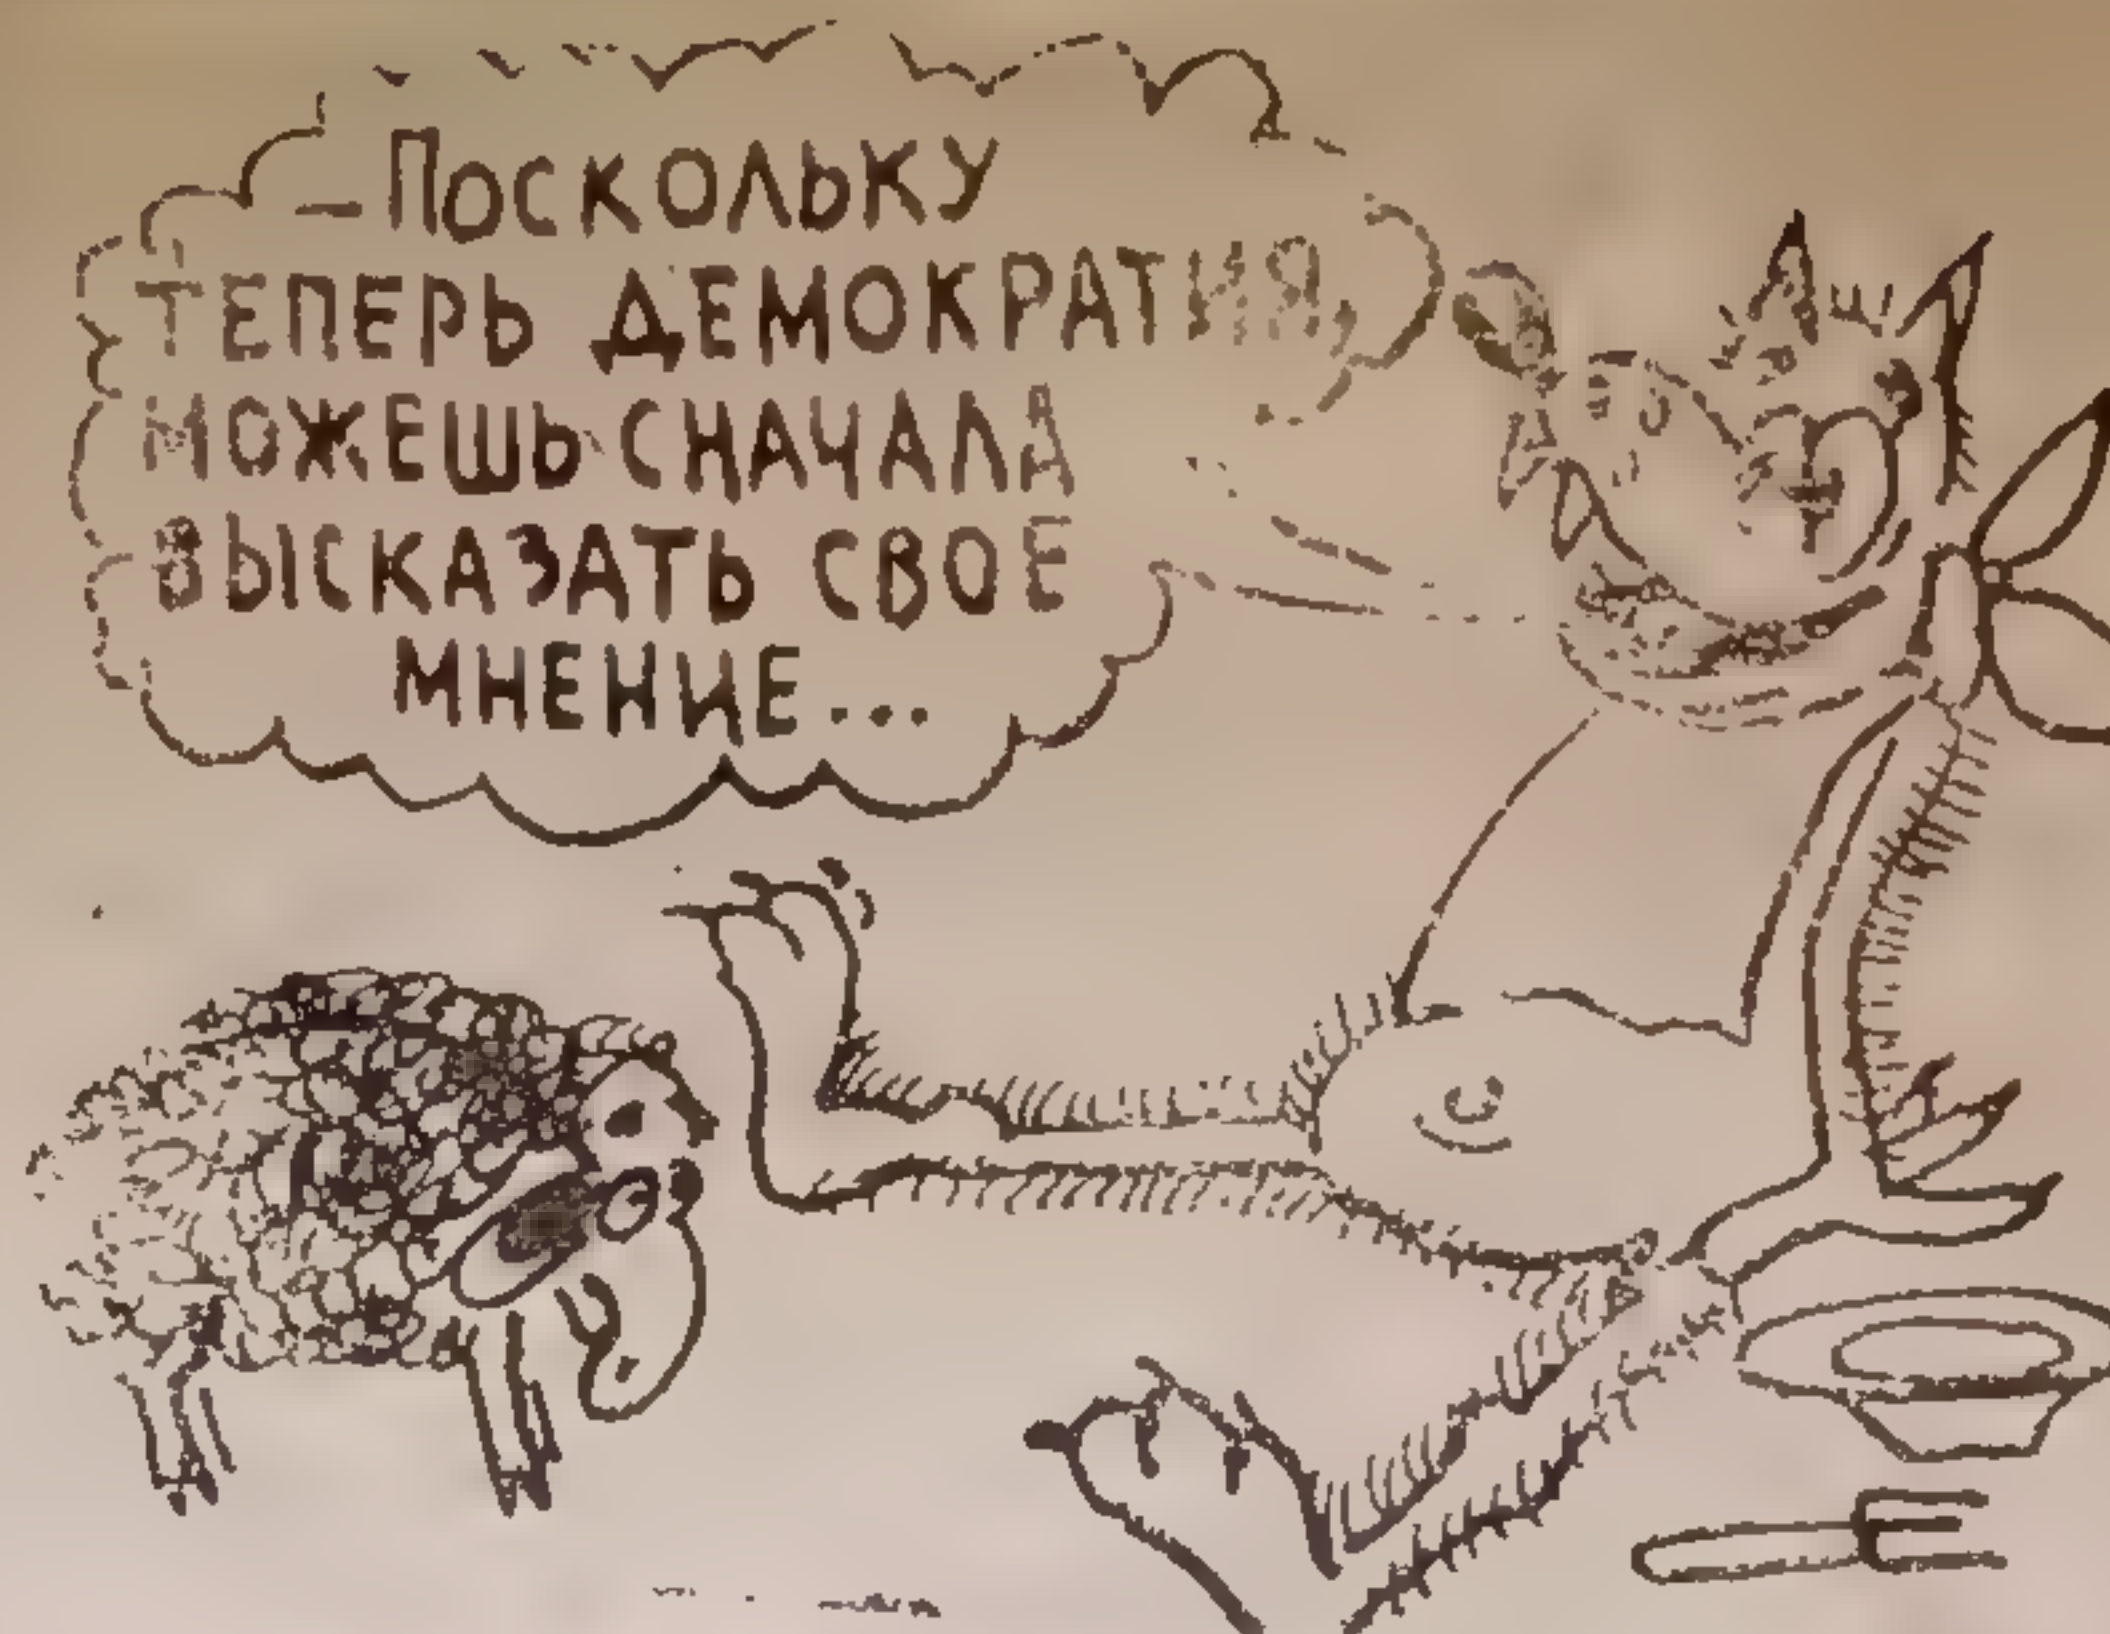 – Поскольку
теперь демократия,
можешь сначала
высказать свое
мнение...